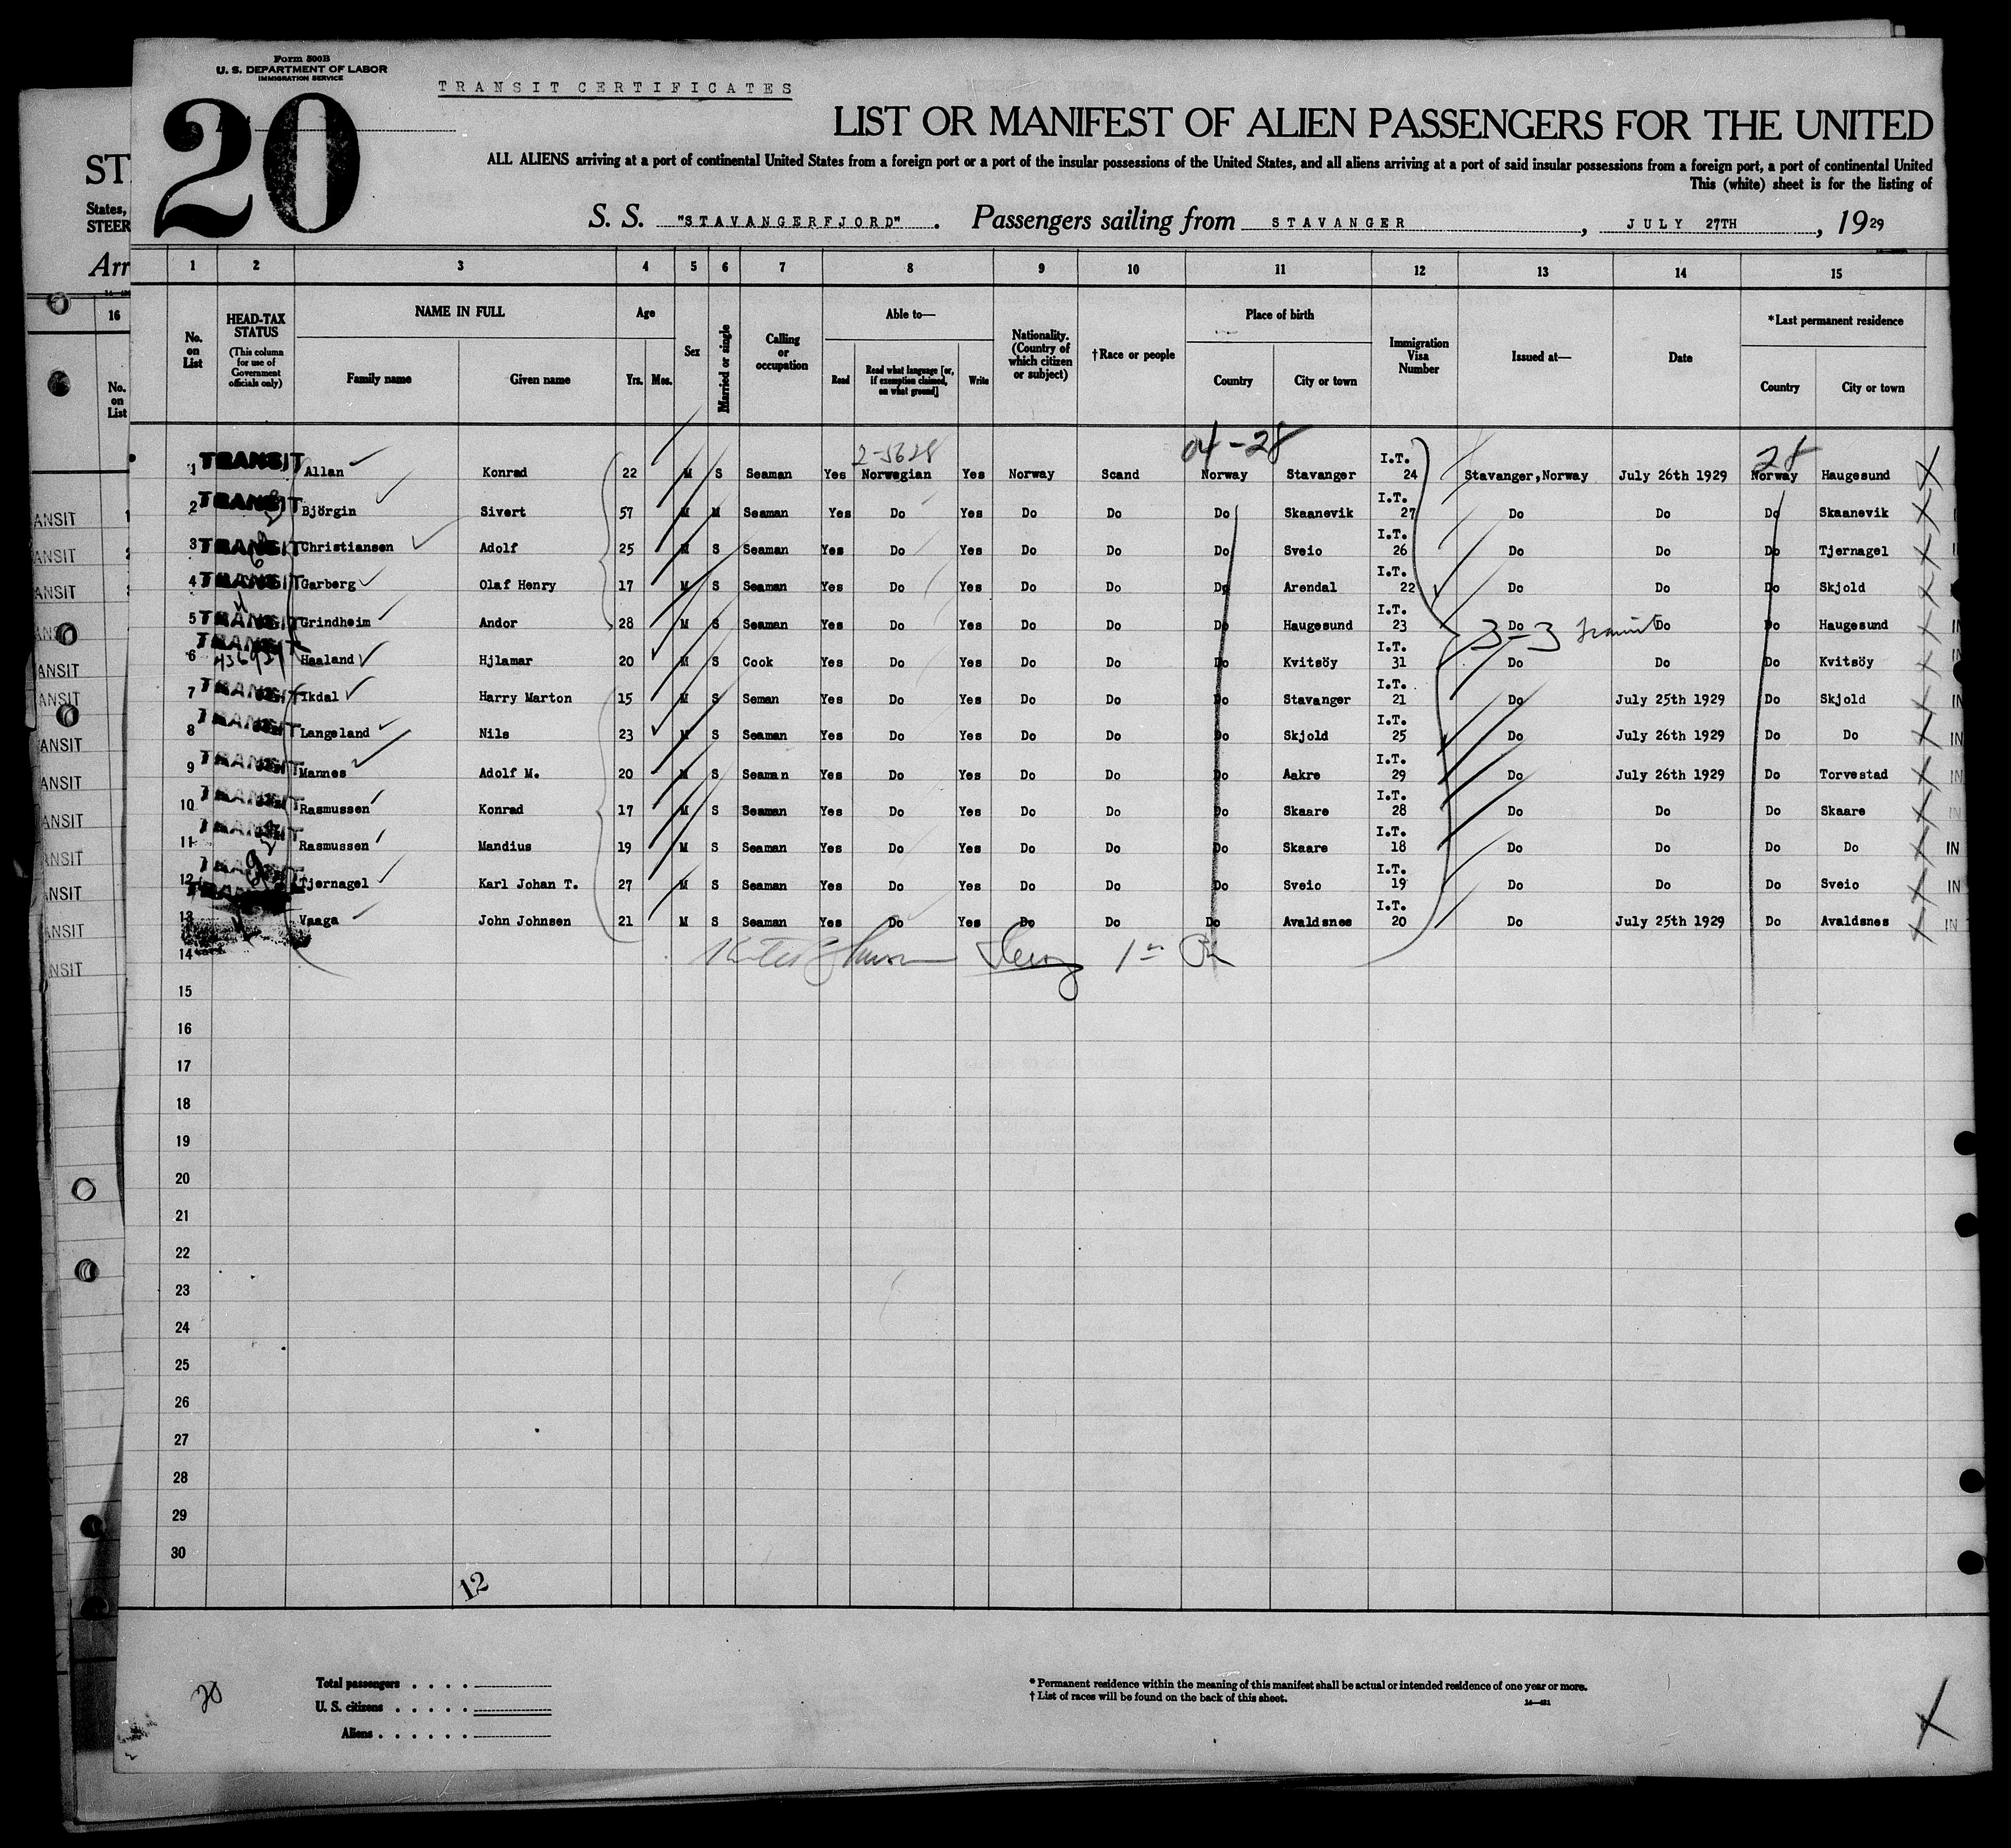 Form 500B
U. S. DEPARTMENT OF LABOR
IMMIGRATION SERVICE
TRANSIT CERTIFICATES
20
LIST OR MANIFEST OF ALIEN PASSENGERS FOR THE UNITED
ALL ALIENS arriving at a port of continental United States from a foreign port or a port of the insular possessions of the United States, and all aliens arriving at a port of said insular possessions from a foreign port, a port of continental United
This (white) sheet is for the listing of
S. S. "STAVANGERFJORD". Passengers sailing from STAVANGER, JULY 27TH, 1929
ST
States,
STEER
Arr
16
No. on List
1 2 3 4 5 6 7 8 9 10 11 12 13 14 15
No. on List
HEAD-TAX STATUS (This column for use of Government officials only)
NAME IN FULL
Family name Given name
Age
Yrs. Mos.
Sex
Married or single
Calling or occupation
Able to—
Read Read what language [or, if exemption claimed, on what ground] Write
Nationality. (Country of which citizen or subject)
†Race or people
Place of birth
Country City or town
Immigration Visa Number
Issued at—
Date
*Last permanent residence
Country City or town
2-5628 04-28 28
1 TRANSIT Allan Konrad 22 M S Seaman Yes Norwegian Yes Norway Scand Norway Stavanger I.T. 24 Stavanger,Norway July 26th 1929 Norway Haugesund
2 TRANSIT Björgin Sivert 57 M M Seaman Yes Do Yes Do Do Do Skaanevik I.T. 27 Do Do Do Skaanevik
3 TRANSIT Christiansen Adolf 25 M S Seaman Yes Do Yes Do Do Do Sveio I.T. 26 Do Do Do Tjernagel
4 TRANSIT Garberg Olaf Henry 17 M S Seaman Yes Do Yes Do Do Do Arendal I.T. 22 Do Do Do Skjold
5 TRANSIT Grindheim Andor 28 M S Seaman Yes Do Yes Do Do Do Haugesund I.T. 23 Do Do Do Haugesund
3-3 Transit
6 TRANSIT Haaland Hjlamar 20 M S Cook Yes Do Yes Do Do Do Kvitsöy I.T. 31 Do Do Do Kvitsöy
7 TRANSIT Ikdal Harry Marton 15 M S Seman Yes Do Yes Do Do Do Stavanger I.T. 21 Do July 25th 1929 Do Skjold
8 TRANSIT Langeland Nils 23 M S Seaman Yes Do Yes Do Do Do Skjold I.T. 25 Do July 26th 1929 Do Do
9 TRANSIT Mannes Adolf M. 20 M S Seaman Yes Do Yes Do Do Do Aakre I.T. 29 Do July 26th 1929 Do Torvestad
10 TRANSIT Rasmussen Konrad 17 M S Seaman Yes Do Yes Do Do Do Skaare I.T. 28 Do Do Do Skaare
11 TRANSIT Rasmussen Mandius 19 M S Seaman Yes Do Yes Do Do Do Skaare I.T. 18 Do Do Do Do
12 TRANSIT Tjernagel Karl Johan T. 27 M S Seaman Yes Do Yes Do Do Do Sveio I.T. 19 Do Do Do Sveio
13 TRANSIT Vaaga John Johnsen 21 M S Seaman Yes Do Yes Do Do Do Avaldsnes I.T. 20 Do July 25th 1929 Do Avaldsnes
14
15
16
17
18
19
20
21
22
23
24
25
26
27
28
29
30
12
20
Total passengers
U. S. citizens
Aliens
* Permanent residence within the meaning of this manifest shall be actual or intended residence of one year or more.
† List of races will be found on the back of this sheet.